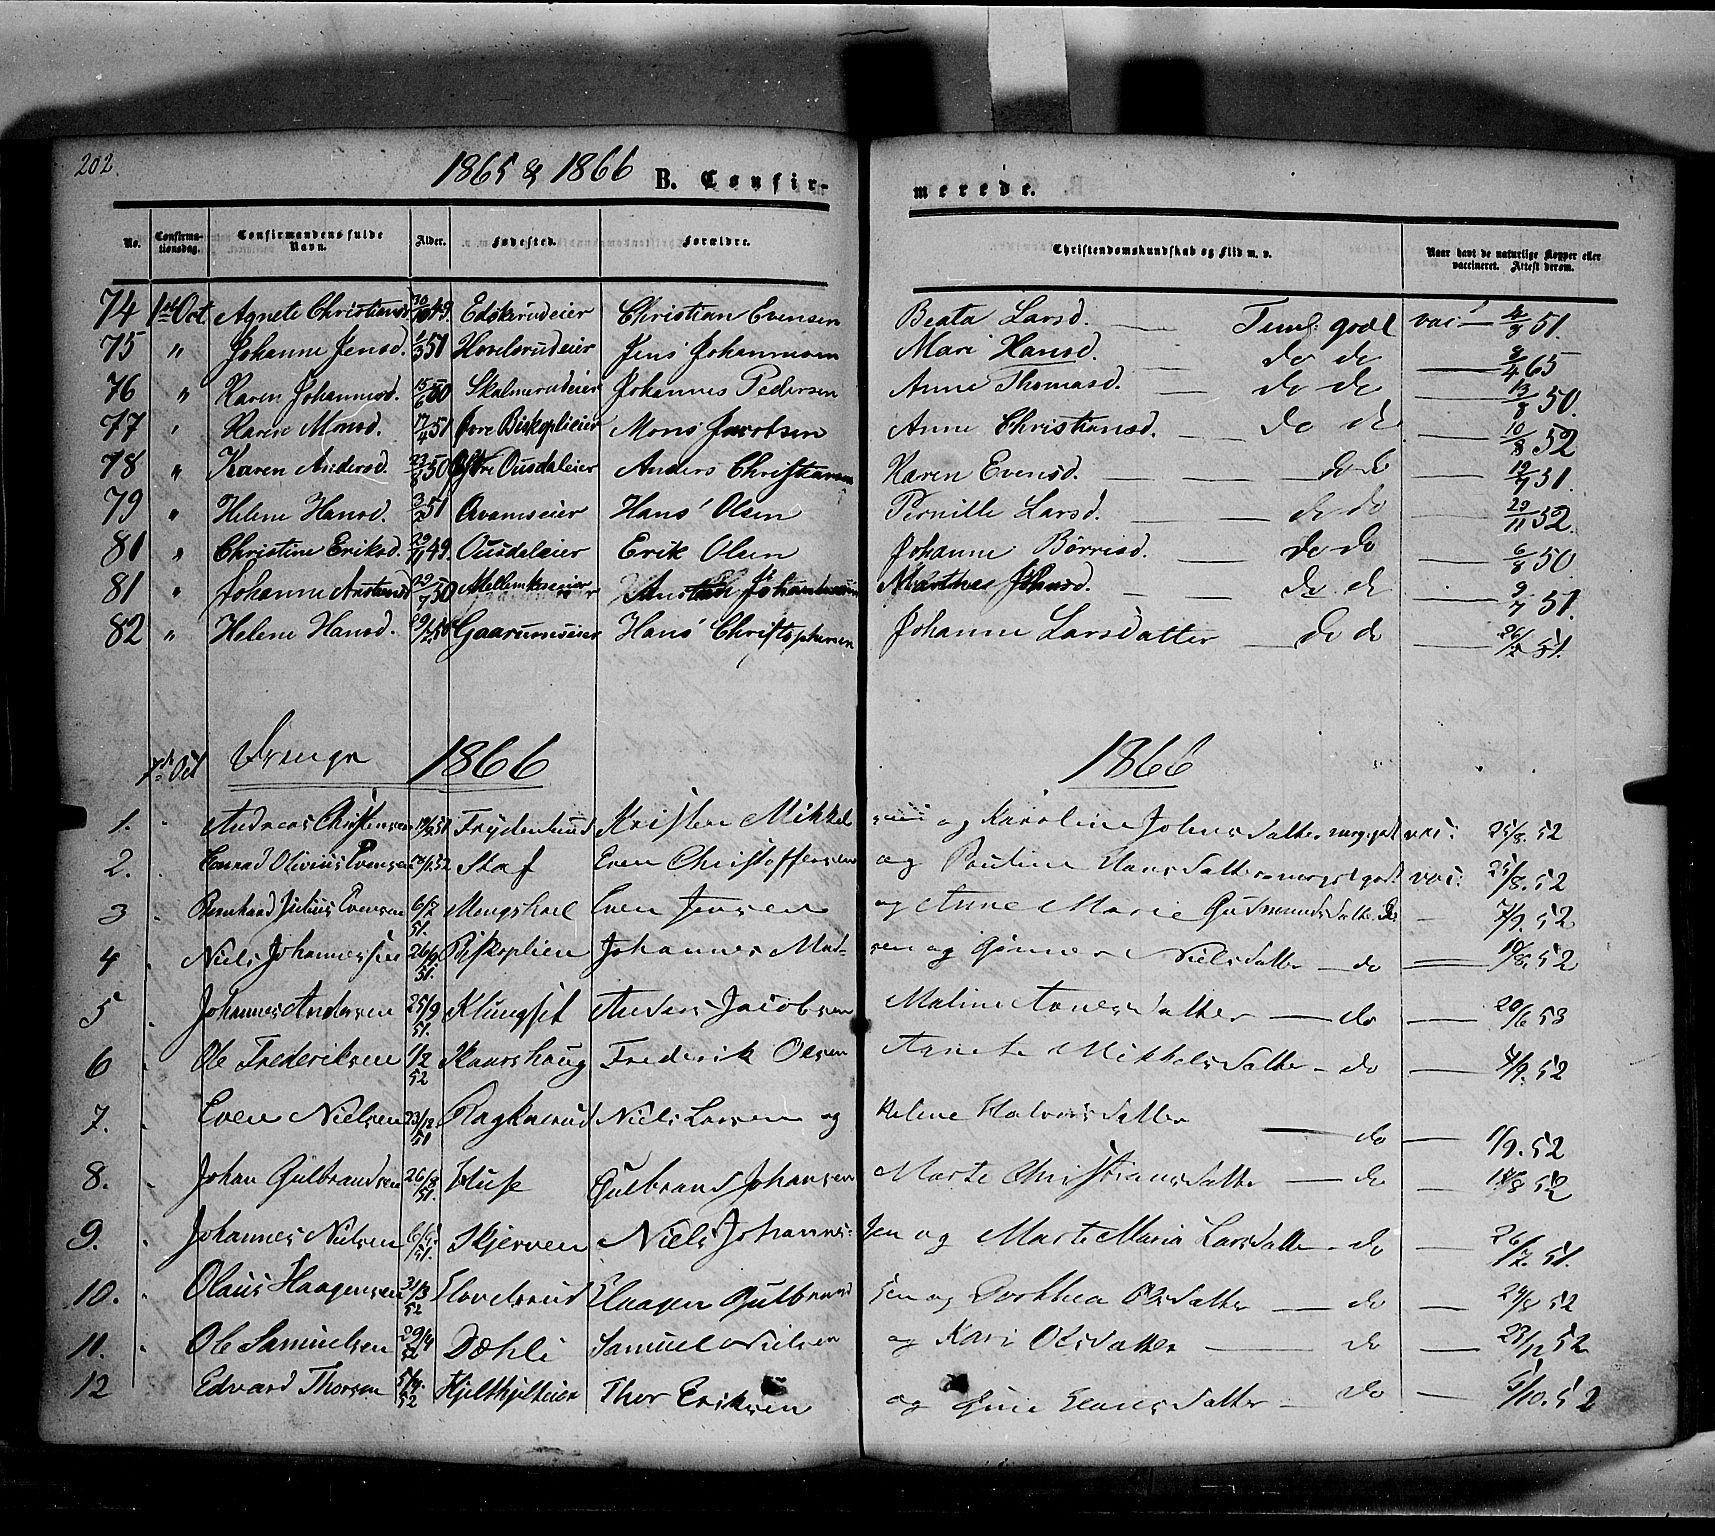 202.
1865 & 1866 B. Confir- merede.
No. Confirmationsdag. Confirmandens fulde Navn. Alder. Fødested. Forældre. Christendomskundskab og Flid m. v. Naar havt de naturlige Kopper eller vaccineret. Attest derom.
74 1ste Oct Agnete Christiansd 49. Edskerudeier Christian Evensen Beata Larsd. — Temlg godt vac — 51.
75 " Johanne Jensd. 1/3 51 Hovelsrudeier Jens Johannesen Mari Hansd. do do — 8/4 65
76 " Karen Johannesd. 15/6 50 Skalmerudeier Johannes Pedersen Anne Thomasd. do do — 13/8 50.
77 " Karen Monsd. 17/4 51 Øvre Biskoplieier Mons Jacobsen Anne Christiansd. — do do — 10/8 52
78 " Karen Andersd. 23/8 50 Østre Ousdaleier Anders Christiansen Karen Evensd. — do do — 51.
79 " Helene Hansd. 3/2 51 Hans Olsen Pernille Larsd. — do do — 20/11 52.
81 " Christine Eriksd. 29/11 49. Ousdaleier Erik Olsen Johanne Børresd. — do do — 6/8 50
81 " Johanne 22/7 50 Johannesen do do — 9/7 51.
82 " Helene Hansd. 50 Gaarumseier Hans Christophersen Johanne Larsdatter — do do — 26/ 51.
7de Oct Drenge 1866 1866
1. Andreas Christensen 51 Frydenlund Kristen Mikkelsen og Karoline Johnsdatter mgt godt vac: 25/8. 52
2. Conrad Olivius Evensen 52 Staf Even Christoffersen og Pauline Hansdatter meget godt vac: 25/8. 52
3 Bernhard Julius Evensen 51. Mengshoel Even Jensen og Anne Marie Gudmundsdatter Do — 7/9. 52
4 Niels Johannessen 26/9 51. Biskoplien Johannes Madsen og Nielsdatter — do — 19/8. 52
5 Johannes Andersen 25/9 51. Klungset Anders Jacobsen Maline datter — do — 20/6 53
6 Ole Frederiksen 1/2 52 Skaarshaug Frederik Olsen Agnete Mikkelsdatter — do — 52
7. Even Nielsen 23/12 51 Niels Larsen og Helene Halvorsdatter — do — 1/9. 52
8. Johan Gulbrandsen 26/8 51. Huse Gulbrand Johansen Marte Christiansdatter — do — 52
9. Johannes Nielsen 51. Skjerven Niels Johannessen og Marte Maria Larsdatter — do — 51.
10. Olaus Haagensen 31/3 52 Hovelsrud Haagen Gulbrandsen og Dorthea Olsdatter — do — 52
11. Ole Samuelsen 29/4 52 Dæhli Samuel Nielsen og Kari Olsdatter — do — 23/12 52
12 Edvard Thorsen 52 Hjelthjelteier Thor Eriksen og Hansdatter — do — 5/10. 52